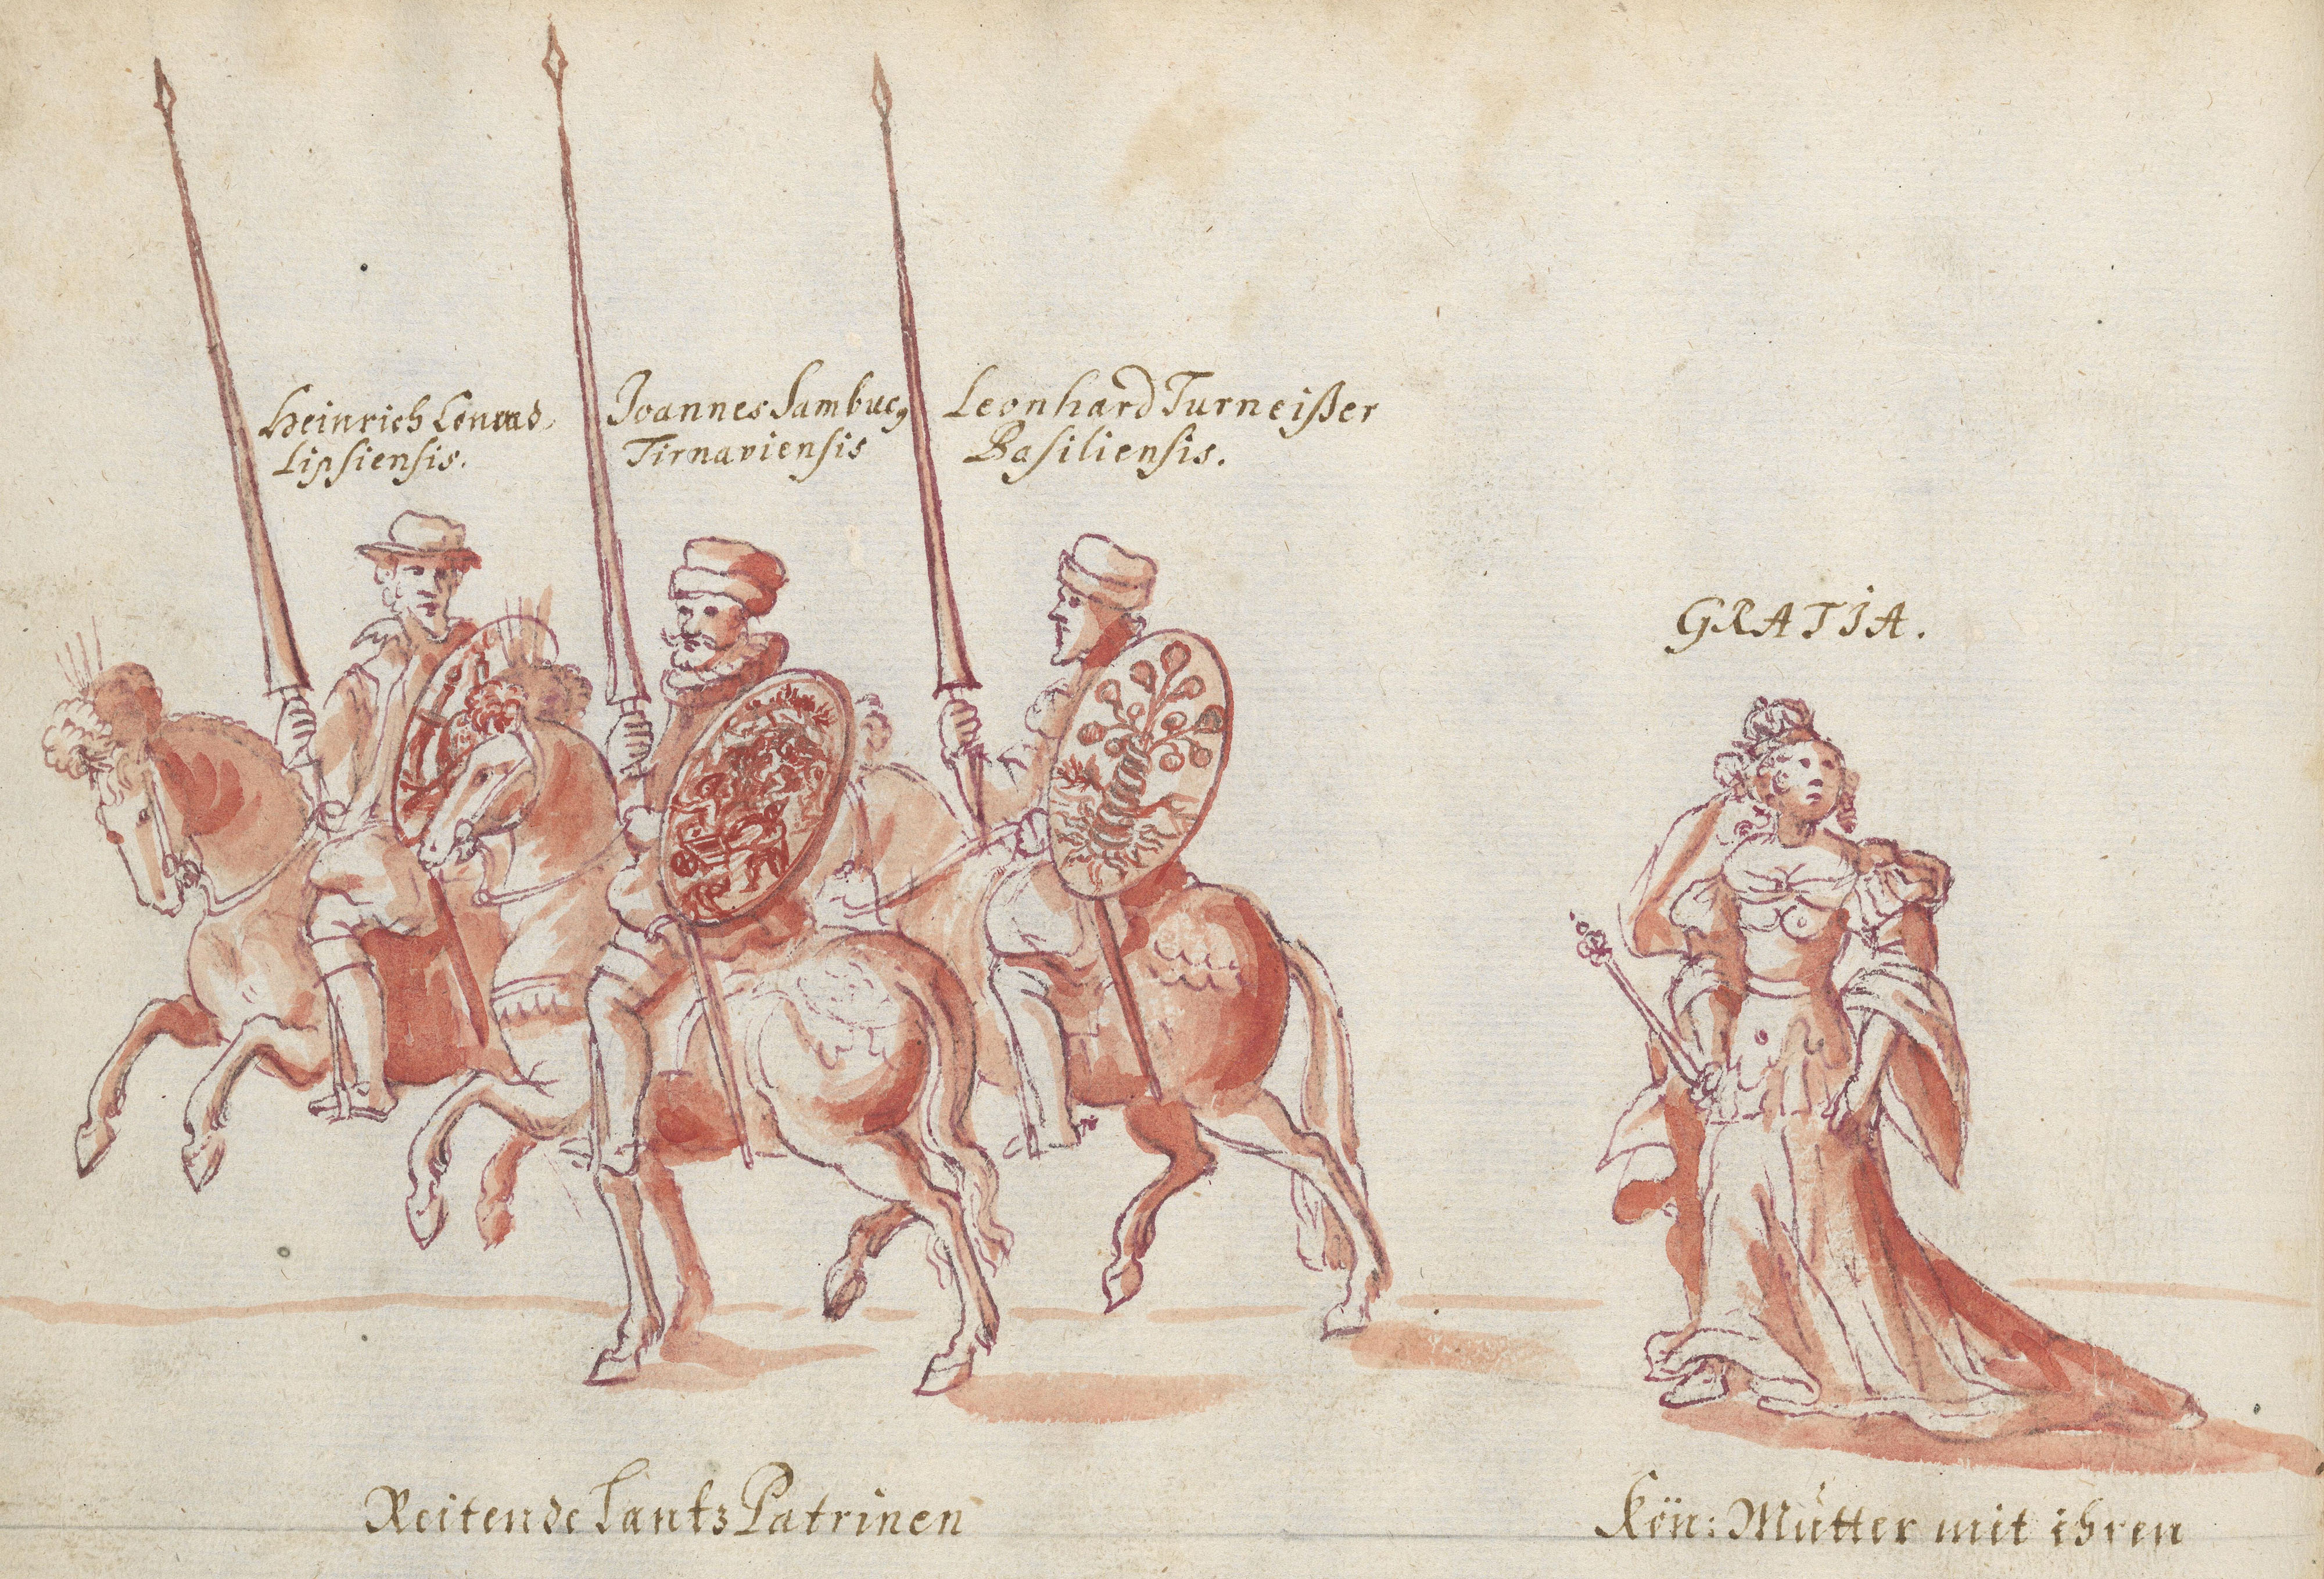 Heinrich Conrad
Lipsiensis.
Joannes Sambucꝰ
Tirnaviensis
Leonhard Turneißer
Basiliensis.
GRATIA.
Reitende Lantz Patrinen
Kön: Mutter mit ihren